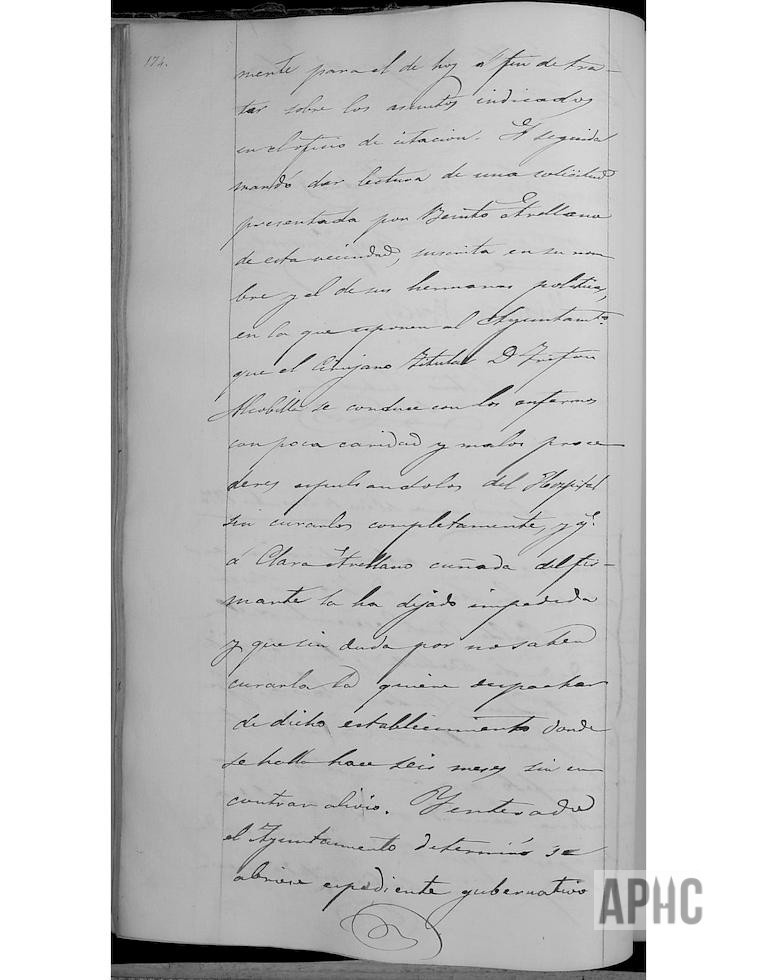 174.
mente para el de hoy á fin de tra-
tar sobre los asuntos indicados
en el oficio de citacion. Y seguida
mandó dar lectura de una solicitud
presentada por Benito Arellano
de esta vecindad, suscrita en su nom
bre y el de sus hermanas politicas,
en la que esponen al Ayuntamto
que el Cirujano Titular D
Alcobilla se conduce con los enfermos
con poca caridad y malos proce
deres espulsandolos del Hospital
sin curarlos completamente, y q.
á Clara Arellano cuñada del fir-
mante la ha dejado impedida
y que sin duda por no saber
curarla la quiere despachar
de dicho establecimiento donde
se halla hace seis meses sin en
contrar alivio. Y enterado
el Ayuntamiento determinó se
abriese espediente gubernativo
APHC